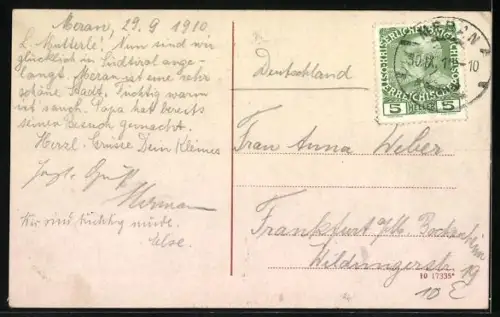 Meran, 29.9 1910.
L. Mutterle! Nun sind wir
glücklich in Südtirol ange-
langt. Meran ist eine sehr
schöne Stadt. Tüchtig warm
ist's auch. Papa hat bereits
seinen Besuch gemacht.
Herzl. Grüsse Dein Kleines
Gruß
Herman
Wir sind tüchtig müde.
Else.
Deutschland
Frau Anna Weber
Frankfurt a/M. Bockenheim
Wildungerstr. 19
10 E
10 17335*
MERAN
30.IX.1
10
5 5